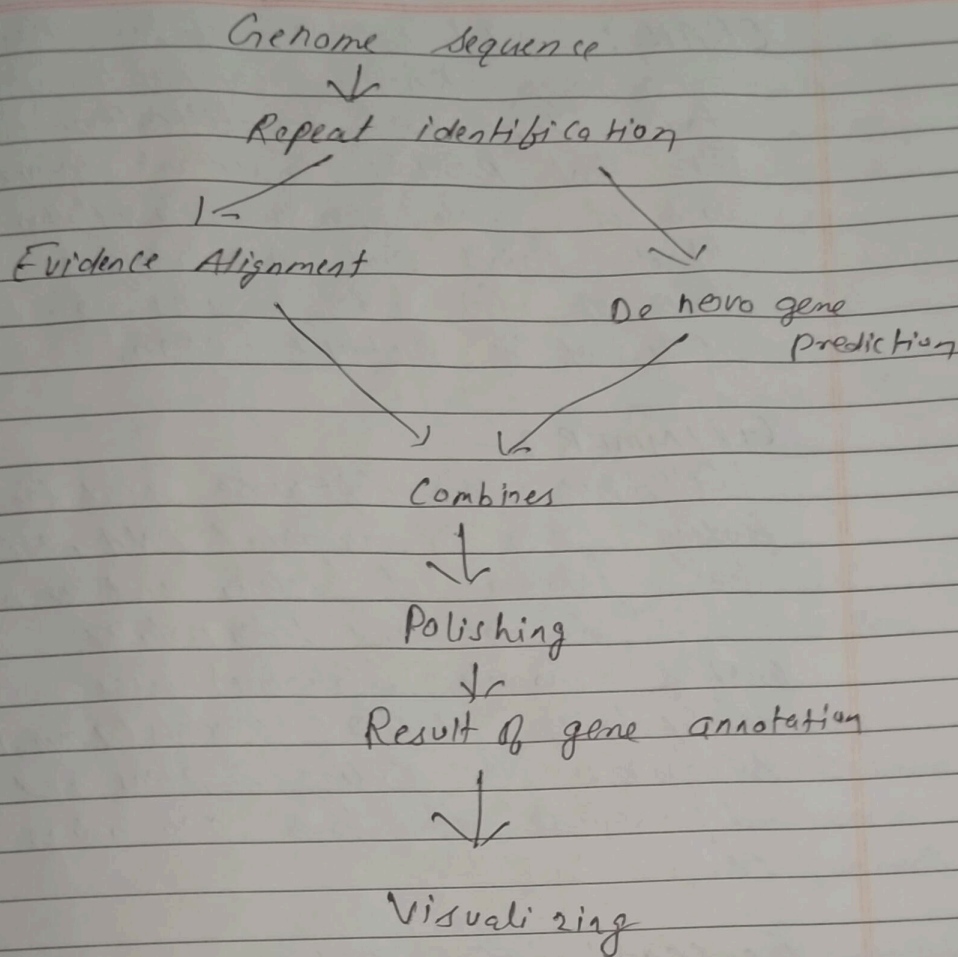 Genome sequence
Repeat identification
Evidence Alignment
De novo gene
prediction
Combines
Polishing
Result of gene annotation
Visualizing